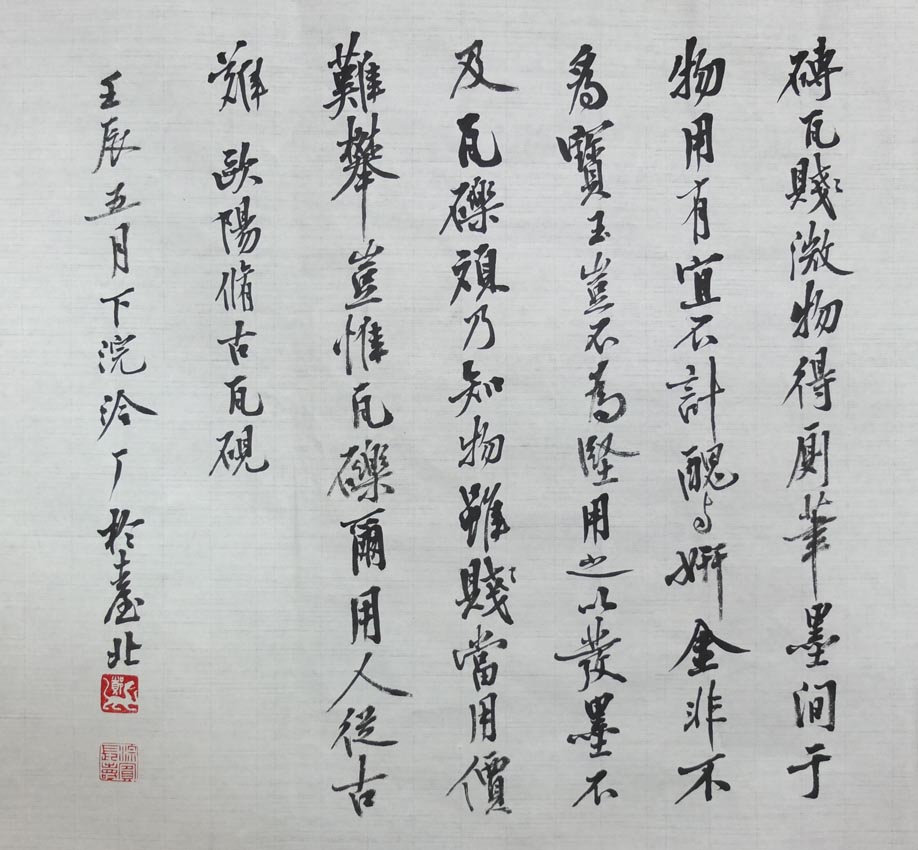 磚瓦賤微物得廁筆墨間于
物用有宜不計醜與妍金非不
為寶玉豈不為堅用之以發墨不
及瓦礫頑乃知物雖賤當用價
難攀豈惟瓦礫爾用人從古
難 歐陽脩古瓦硯
壬辰五月下浣泠丁於臺北